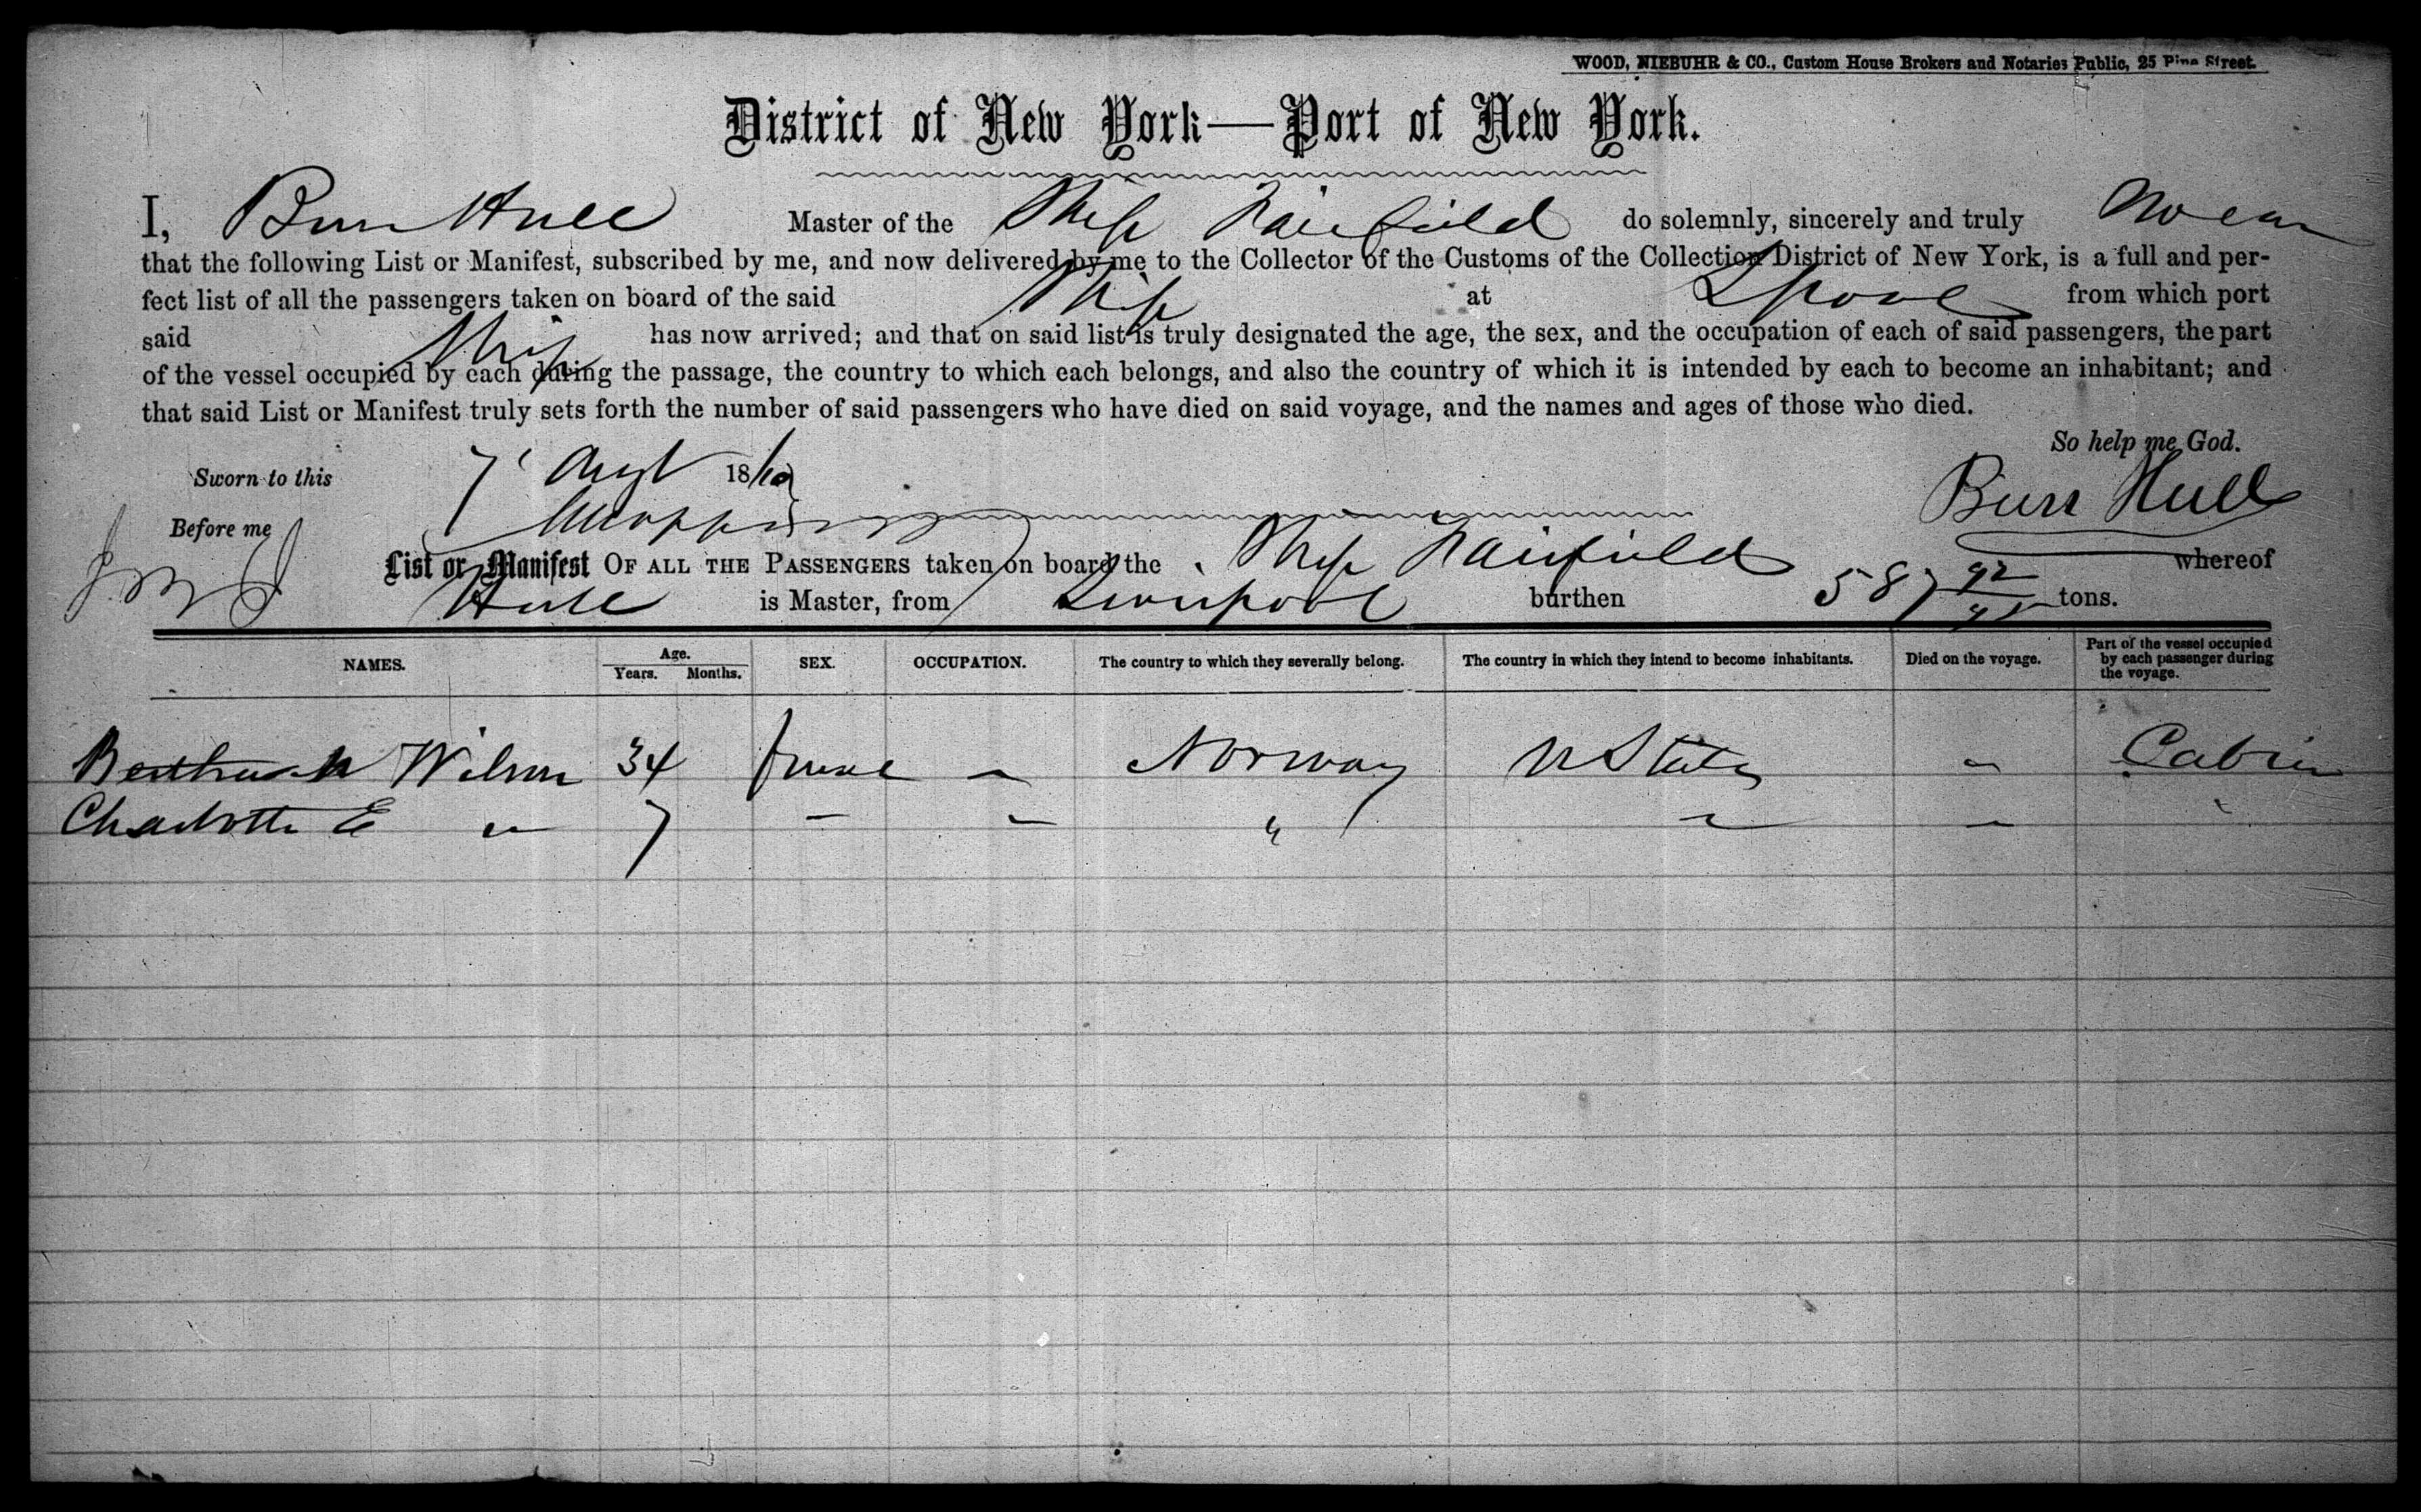 WOOD, NIEBUHR & CO., Custom House Brokers and Notaries Public, 25 Pine Street.
District of New York—Port of New York.
I, Burr Hull Master of the Ship Fairfield do solemnly, sincerely and truly swear
that the following List or Manifest, subscribed by me, and now delivered by me to the Collector of the Customs of the Collection District of New York, is a full and per-
fect list of all the passengers taken on board of the said Ship at Lpool from which port
said Ship has now arrived; and that on said list is truly designated the age, the sex, and the occupation of each of said passengers, the part
of the vessel occupied by each during the passage, the country to which each belongs, and also the country of which it is intended by each to become an inhabitant; and
that said List or Manifest truly sets forth the number of said passengers who have died on said voyage, and the names and ages of those who died.
So help me God.
Sworn to this 7 Augt 1860
Burr Hull
Before me
List or Manifest OF ALL THE PASSENGERS taken on board the Ship Fairfield whereof
Hull is Master, from Liverpool burthen 587 92/95 tons.
NAMES. Age. Years. Months. SEX. OCCUPATION. The country to which they severally belong. The country in which they intend to become inhabitants. Died on the voyage. Part of the vessel occupied by each passenger during the voyage.
Wilson 34 Norway U States Cabin
Charlotte E " 7 - - " " - "